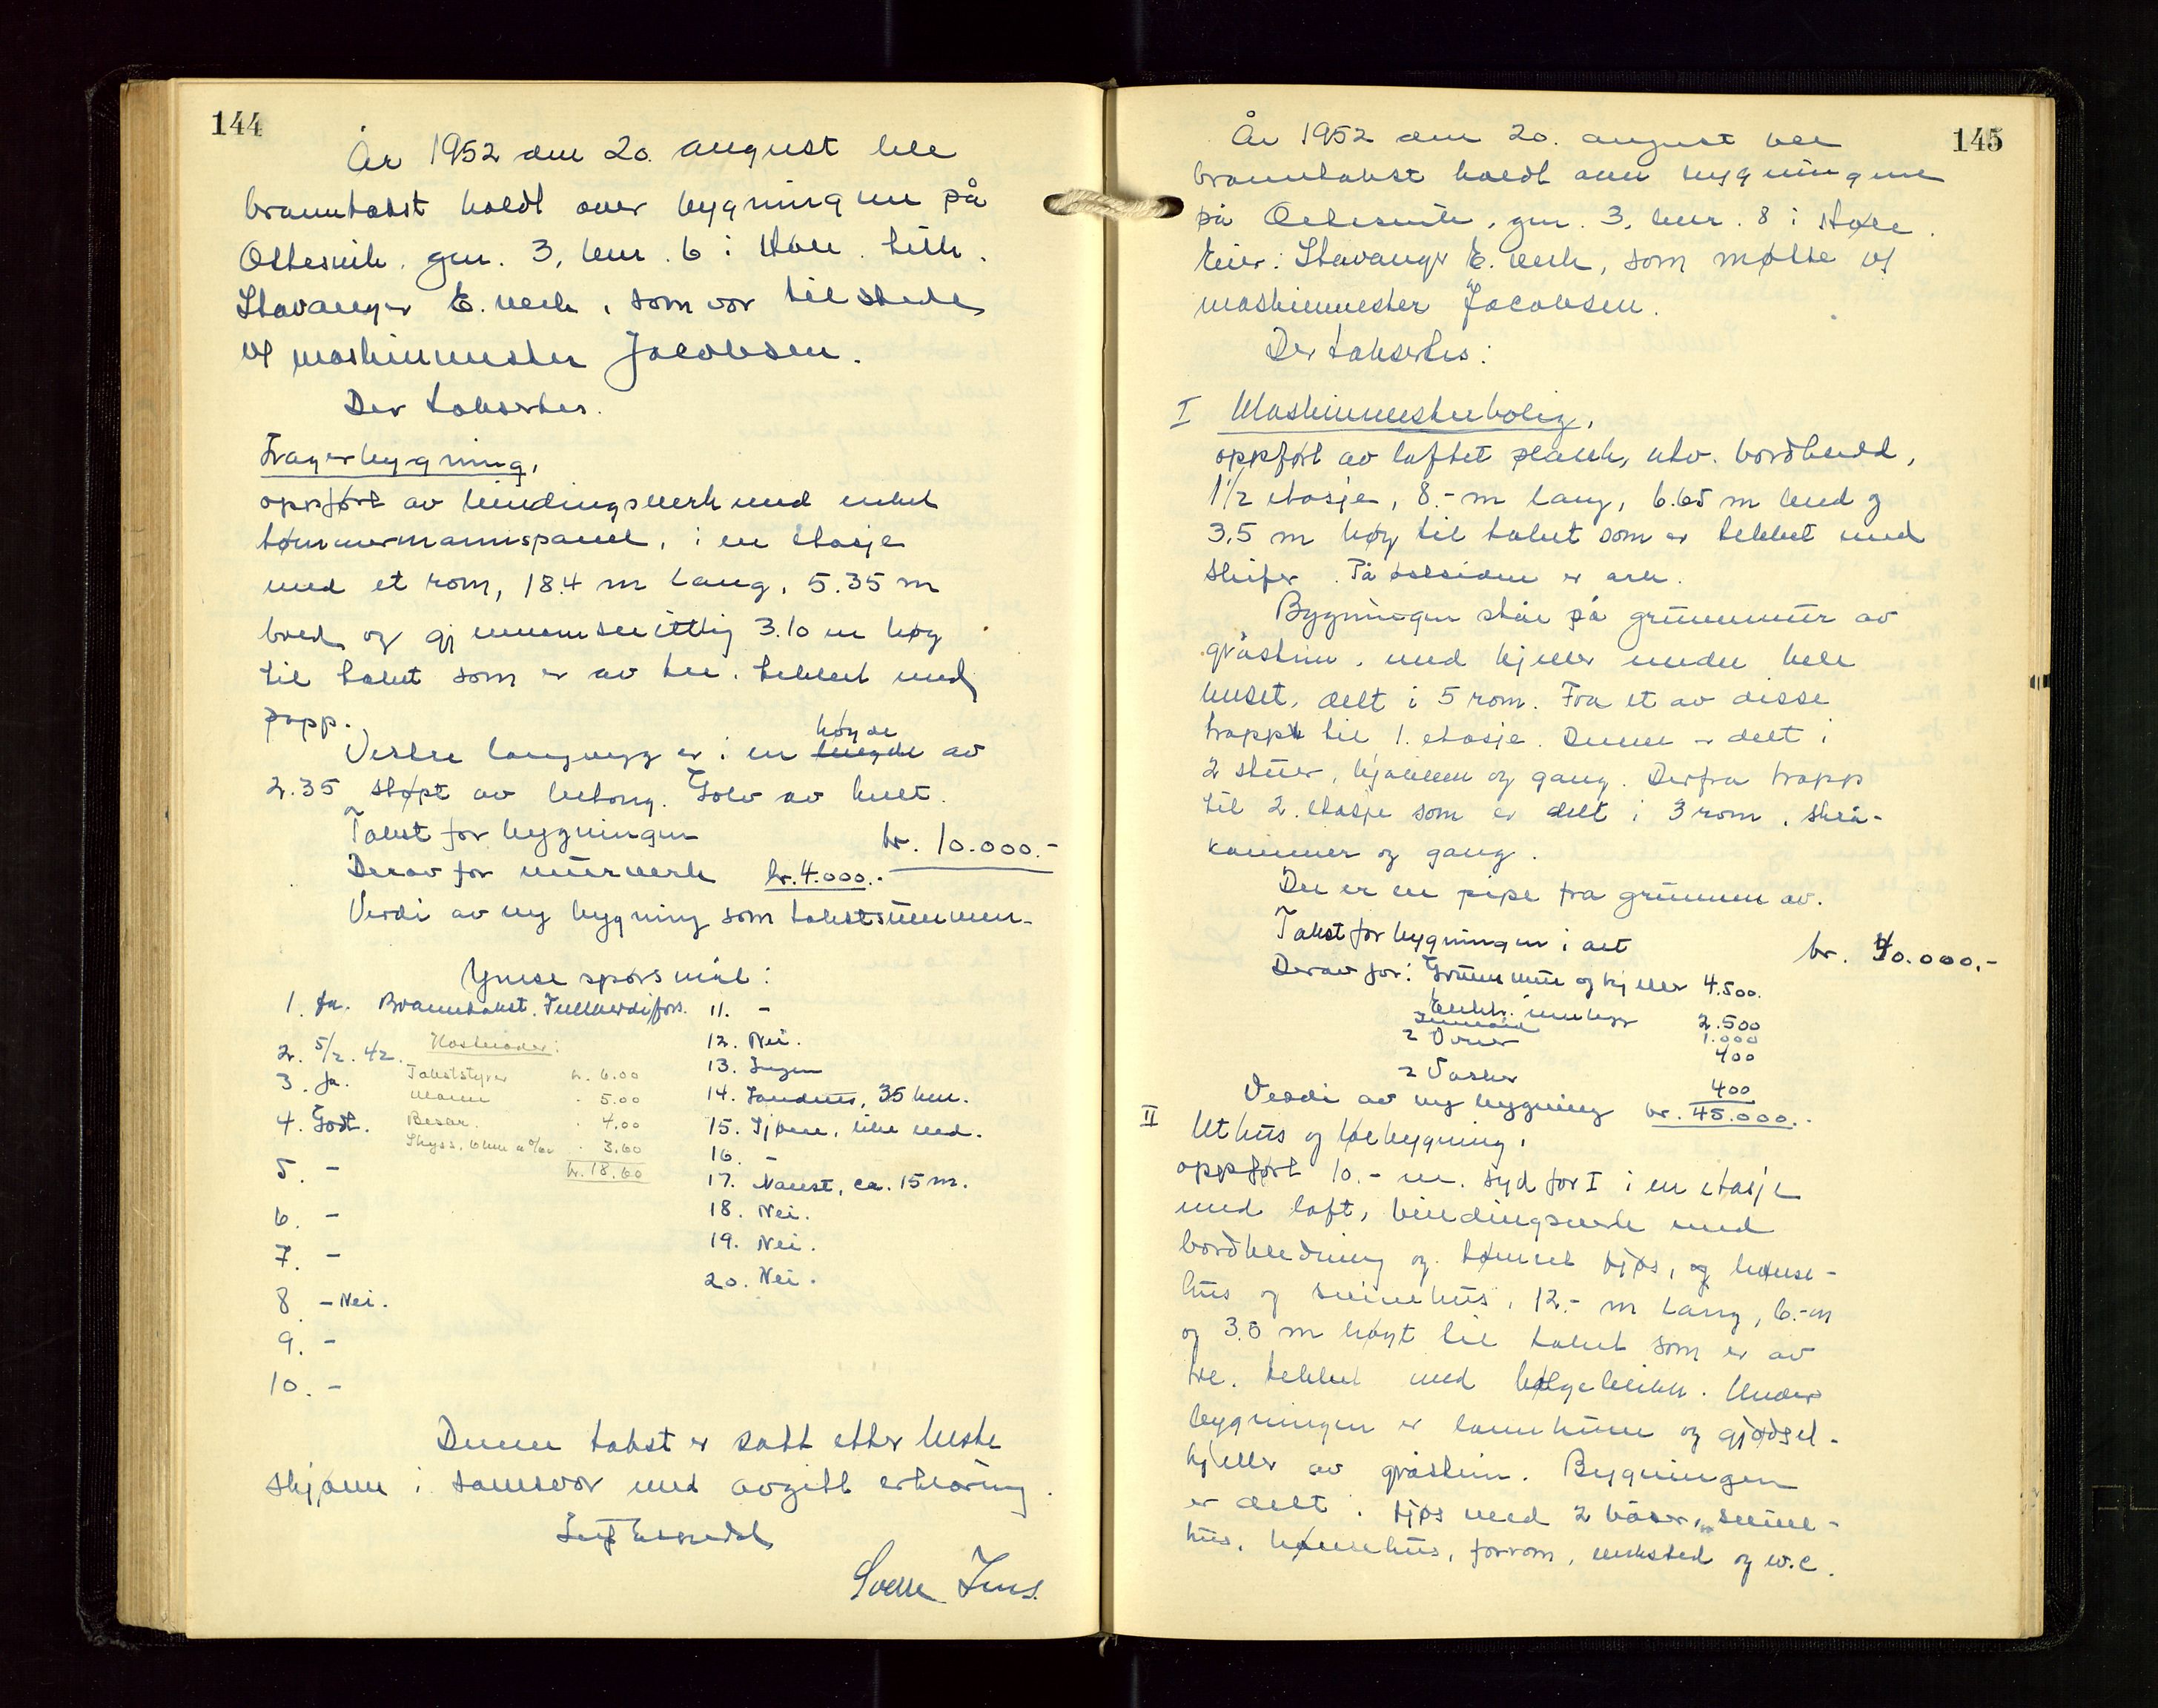 144
År 1952 den 20. august ble
branntakst holdt over bygningene på
Oltesvik, gnr. 3, bnr. 6 i Høle. Tilh.
Stavanger E. verk, som var tilstede
v/ maskinmester Jacobsen.
Der taksertes.
Lagerbygning,
oppført av bindingsverk med enkel
tømmermannspanel, i en etasje
med et rom, 18.4 m lang, 5.35 m
bred og gjennemsnittlig 3.10 m høg
til taket som er av tre, tekket med
papp.
Vestre langvegg er i en høyde av
2.35 støpt av betong. Golv av kult.
Takst for bygningen kr. 10.000.-
Derav for murverk kr. 4.000.-
Verdi av ny bygning som takstsummen.
Ymse spørsmål:
1. Ja. Branntakst. Fullverdifors.
2. 5/2. 42.
3. Ja.
4. Godt.
5. -
6. -
7. -
8. - Nei.
9. -
10. -
Kostnader:
Takststyrer kr. 6.00
Mann · 5.00
Besør. · 4.00
Skyss, 6 km a %60 · 3.60
kr. 18.60
11. -
12. Nei.
13. Ingen
14. Sandnes, 35 km.
15. Sjøen, like ved.
16. -
17. Naust, ca. 15 m.
18. Nei.
19. Nei.
20. Nei.
Denne takst er satt etter beste
skjønn i samsvar med avgitt erklæring.
Leif Espedal
Svein Ims.
145
År 1952 den 20. august ble
branntakst holdt over bygningene
på Oltesvik, gnr. 3, bnr. 8 i Høle.
Eier: Stavanger E. verk, som møtte v/
maskinmester Jacobsen.
Der taksertes:
I Maskinmesterbolig,
oppført av laftet plank, utv. bordkledd,
1 1/2 etasje, 8.- m lang, 6.65 m bred og
3.5 m høg til taket som er tekket med
skifer. På østsiden er ark.
Bygningen står på grunnmur av
gråstein, med kjeller under hele
huset, delt i 5 rom. Fra et av disse
trapp til 1. etasje. Denne er delt i
2 stuer, kjøkken og gang. Derfra trapp
til 2. etasje som er delt i 3 rom, skrå-
kammer og gang.
Der er en pipe fra grunnen av.
Takst for bygningen i alt kr. 40.000.-
Derav for: Grunnmur og kjeller 4.500.
Elektr. innlegg 2.500
Innvoir 1.000
2 Ovner 400
2 Vasker 400
Verdi av ny bygning kr. 45.000.-
II Uthus og løebygning,
oppført 10.- m. syd for I i en etasje
med loft, bindingsverk med
bordkledning og tømret fjøs, og hønse-
hus og svinehus, 12.- m lang, 6.- m
og 3.5 m høyt til taket som er av
tre, tekket med bølgeblikk. Under
bygningen er lannkum og gjødsel-
kjeller av gråstein. Bygningen
er delt i fjøs med 2 båser, svine-
hus, hønsehus, forrom, verksted og w.c.